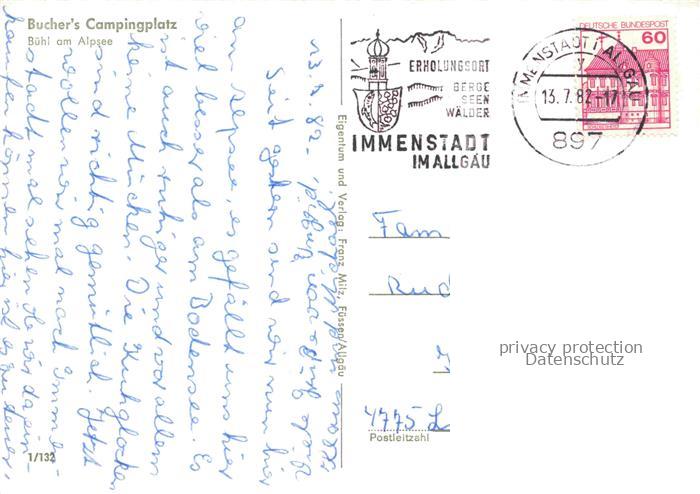 Bucher's Campingplatz
Bühl am Alpsee
ERHOLUNGSORT
BERGE
SEEN
WÄLDER
IMMENSTADT
IM ALLGÄU
IMMENSTADT I ALLGÄU
13.7.82-17
897
DEUTSCHE BUNDESPOST
60
13.7.82.
Seit gestern sind wir nun hier
am Alpsee, es gefällt uns hier
viel besser als am Bodensee. Es
ist auch ruhiger und vor allem
keine Mücken. Die Kuhglocken
sind richtig gemütlich. Jetzt
wollen wir mal nach Immen-
stadt mal sehen
kaufen können hier ist es zu teuer.
Eigentum und Verlag: Franz Milz, Füssen/Allgäu
Fam
Rud
4775 L
Postleitzahl
privacy protection
Datenschutz
1/132